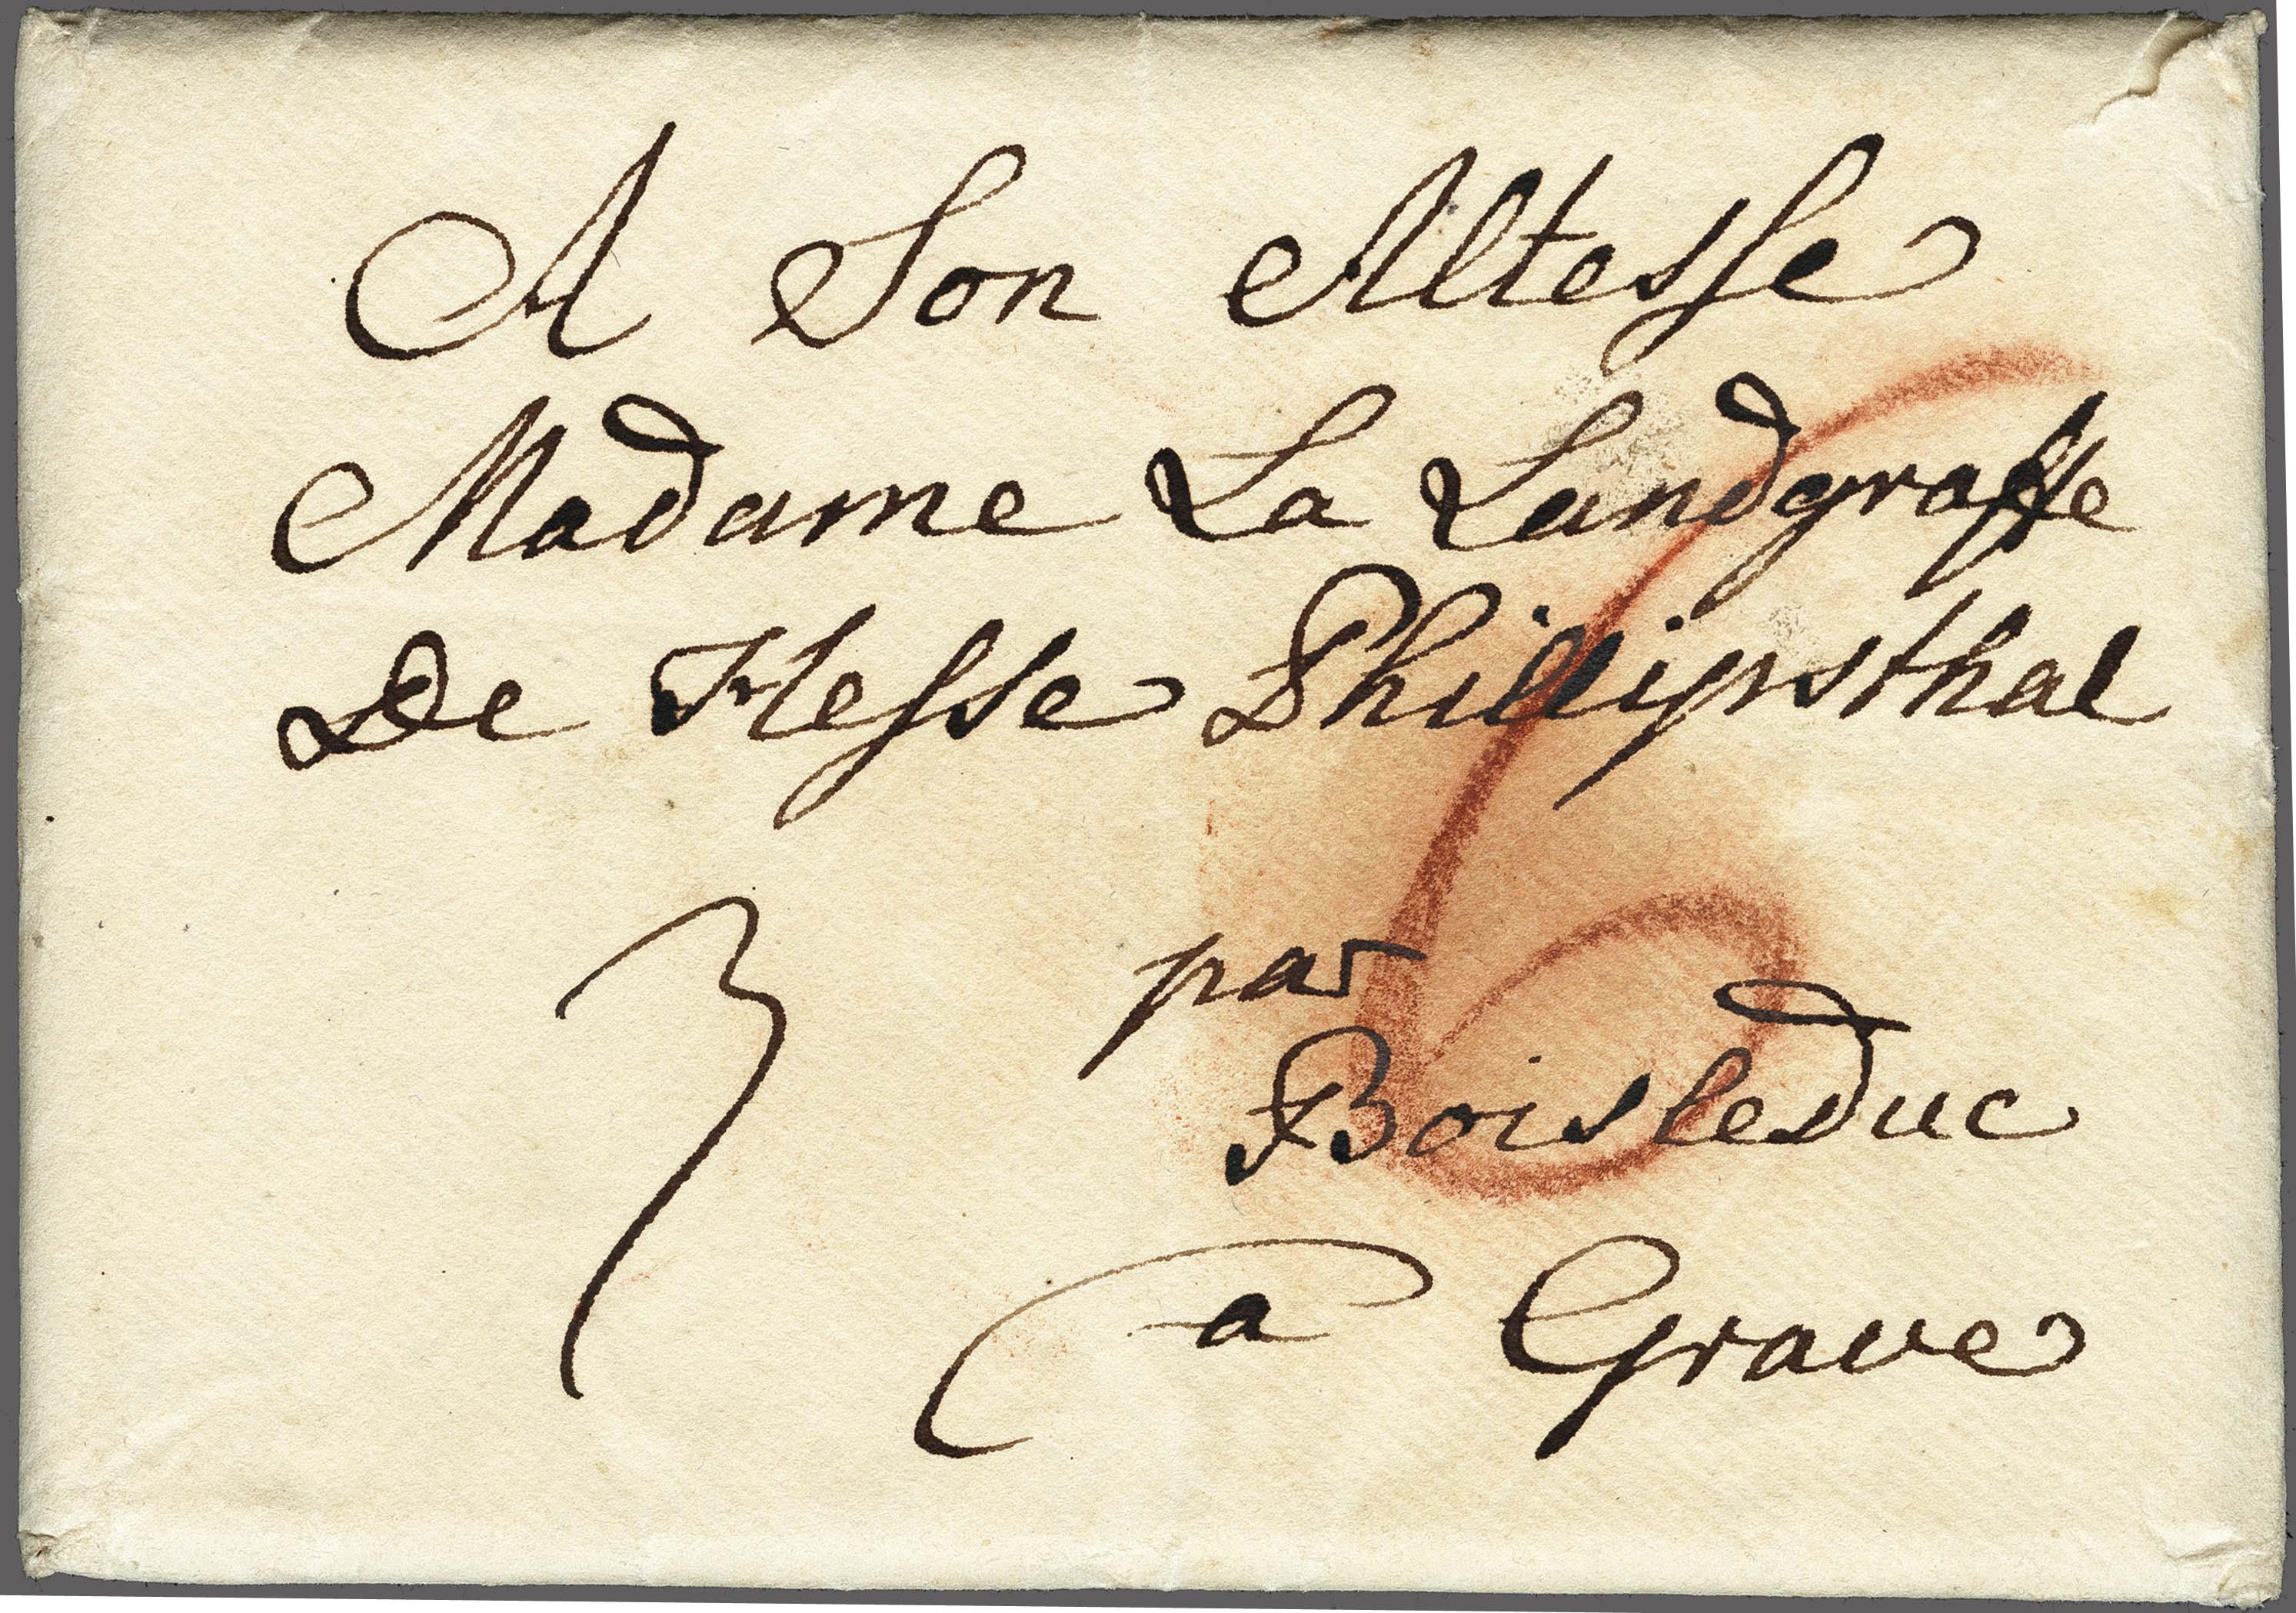 A Son Altesse
Madame La Landgraffe
De Hesse Phillipsthal
3
6
par
Boisleduc
a Grave